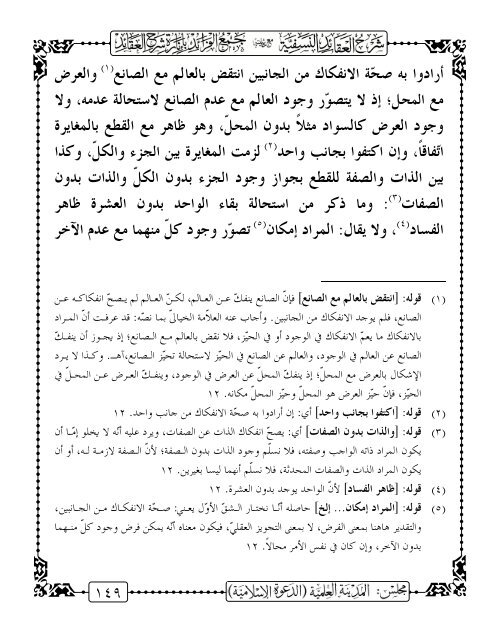 شرح العقائد النسفية مع جمع الفرائد بإنارة شرح العقائد
أرادوا به صحّة الانفكاك من الجانبين انتقض بالعالم مع الصانع(١) والعرض
مع المحل؛ إذ لا يتصوّر وجود العالم مع عدم الصانع لاستحالة عدمه، ولا
وجود العرض كالسواد مثلاً بدون المحلّ، وهو ظاهر مع القطع بالمغايرة
اتّفاقاً، وإن اكتفوا بجانب واحد(٢) لزمت المغايرة بين الجزء والكلّ، وكذا
بين الذات والصفة للقطع بجواز وجود الجزء بدون الكلّ والذات بدون
الصفات(٣): وما ذكر من استحالة بقاء الواحد بدون العشرة ظاهر
الفساد(٤)، ولا يقال: المراد إمكان(٥) تصوّر وجود كلّ منهما مع عدم الآخر
(١) قوله: [انتقض بالعالم مع الصانع] فإنّ الصانع ينفكّ عن العالم، لكنّ العالم لم يصحّ انفكاكه عن
الصانع، فلم يوجد الانفكاك من الجانبين. وأجاب عنه العلاّمة الخياليّ بما نصّه: قد عرفت أنّ المراد
بالانفكاك ما يعمّ الانفكاك في الوجود أو في الحيّز، فلا نقض بالعالم مع الصانع؛ إذ يجوز أن ينفكّ
الصانع عن العالم في الوجود، والعالم عن الصانع في الحيّز لاستحالة تحيّز الصانع،آهـ. وكذا لا يرد
الإشكال بالعرض مع المحل؛ إذ ينفكّ المحلّ عن العرض في الوجود، وينفكّ العرض عن المحلّ في
الحيّز، فإنّ حيّز العرض هو المحلّ وحيّز المحلّ مكانه. ١٢
(٢) قوله: [اكتفوا بجانب واحد] أي: إن أرادوا به صحّة الانفكاك من جانب واحد. ١٢
(٣) قوله: [والذات بدون الصفات] أي: يصحّ انفكاك الذات عن الصفات، ويرد عليه أنّه لا يخلو إمّا أن
يكون المراد ذاته الواجب وصفته، فلا نسلّم وجود الذات بدون الصفة؛ لأنّ الصفة لازمة له، أو أن
يكون المراد الذات والصفات المحدثة، فلا نسلّم أنهما ليسا بغيرين. ١٢
(٤) قوله: [ظاهر الفساد] لأنّ الواحد يوجد بدون العشرة. ١٢
(٥) قوله: [المراد إمكان... إلخ] حاصله أنّا نختار الشقّ الأوّل يعني: صحّة الانفكاك من الجانبين،
والتقدير هاهنا بمعنى الفرض، لا بمعنى التجويز العقليّ، فيكون معناه أنّه يمكن فرض وجود كلّ منهما
بدون الآخر، وإن كان في نفس الأمر محالاً. ١٢
مجلس: المدينة العلمية (الدعوة الإسلامية)
١٤٩